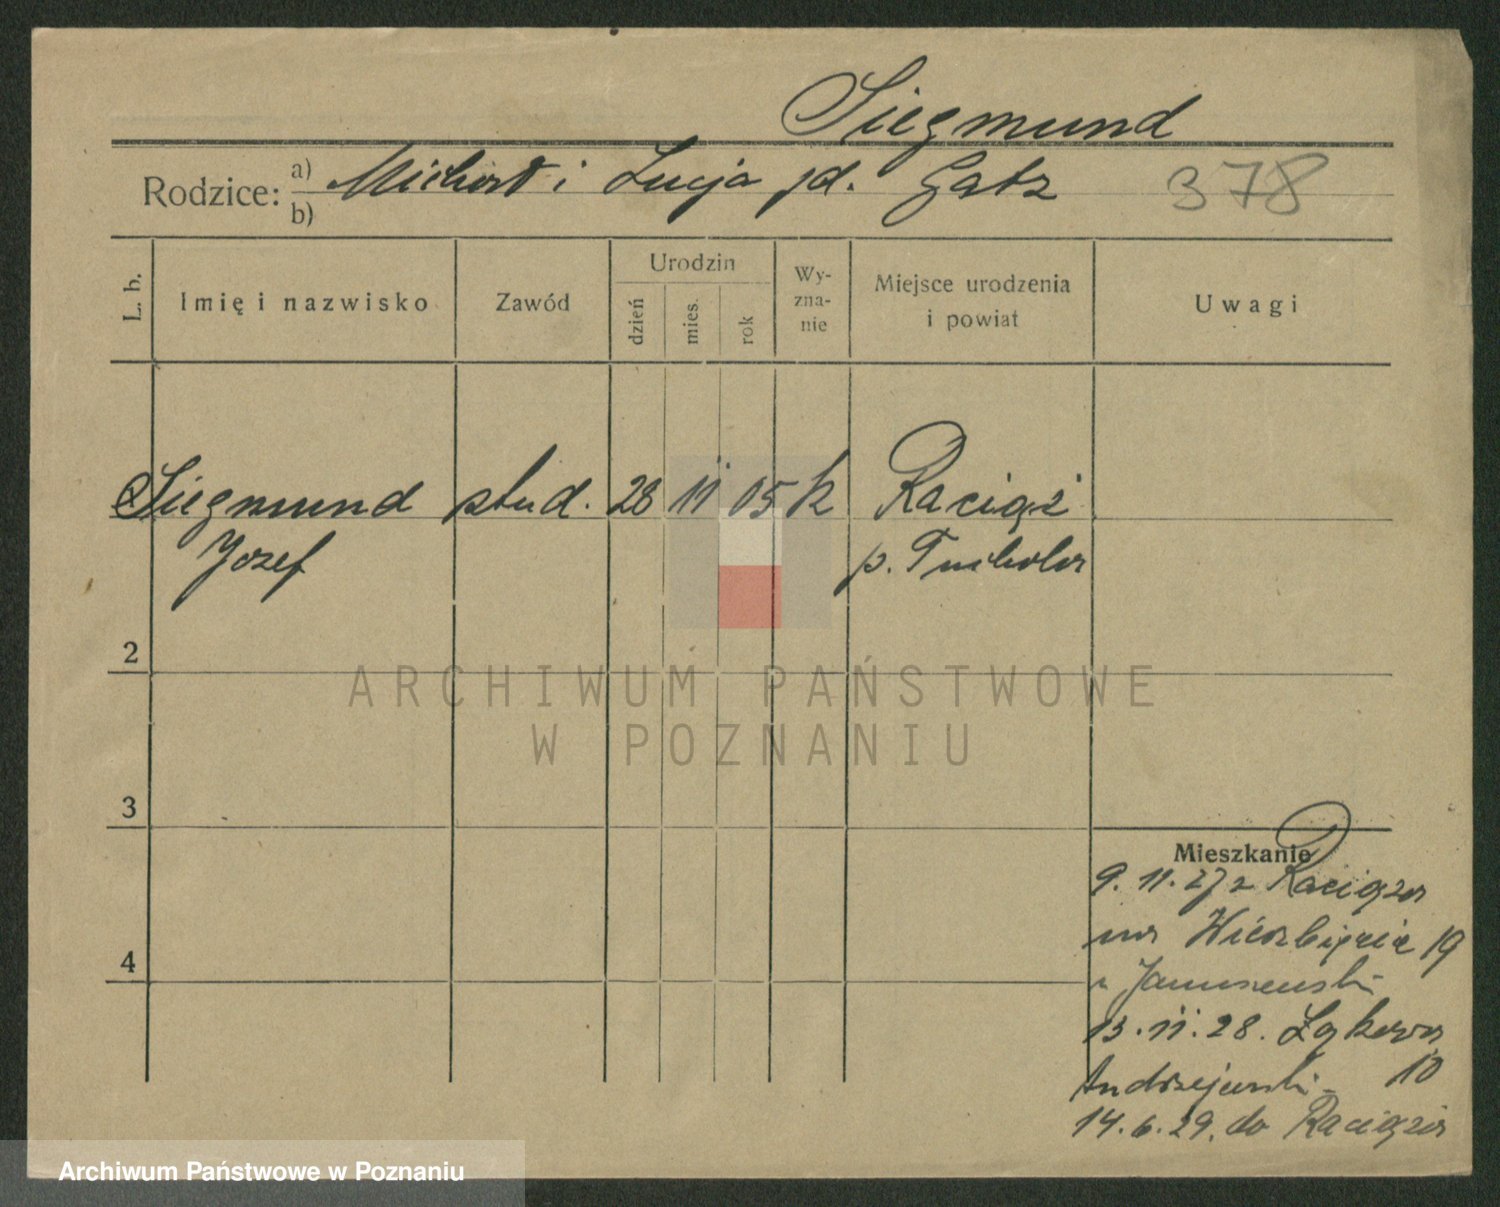 Siegmund
Rodzice: a) Michał i Łucja zd. Gatz 378
b)
L. b.
Imię i nazwisko
Zawód
Urodzin
dzień
mies.
rok
Wy-
zna-
nie
Miejsce urodzenia
i powiat
Uwagi
Siegmund stud. 28 11 05 k Raciąż
Józef p. Tuchola
2
ARCHIWUM PAŃSTWOWE
W POZNANIU
3
Mieszkanie
9. 11. 27 z Raciąża
na Wierzbięcie 19
Januszewski
13. 11. 28. Łąkowa
Andrzejewski 10
14. 6. 29. do Raciąża
4
Archiwum Państwowe w Poznaniu